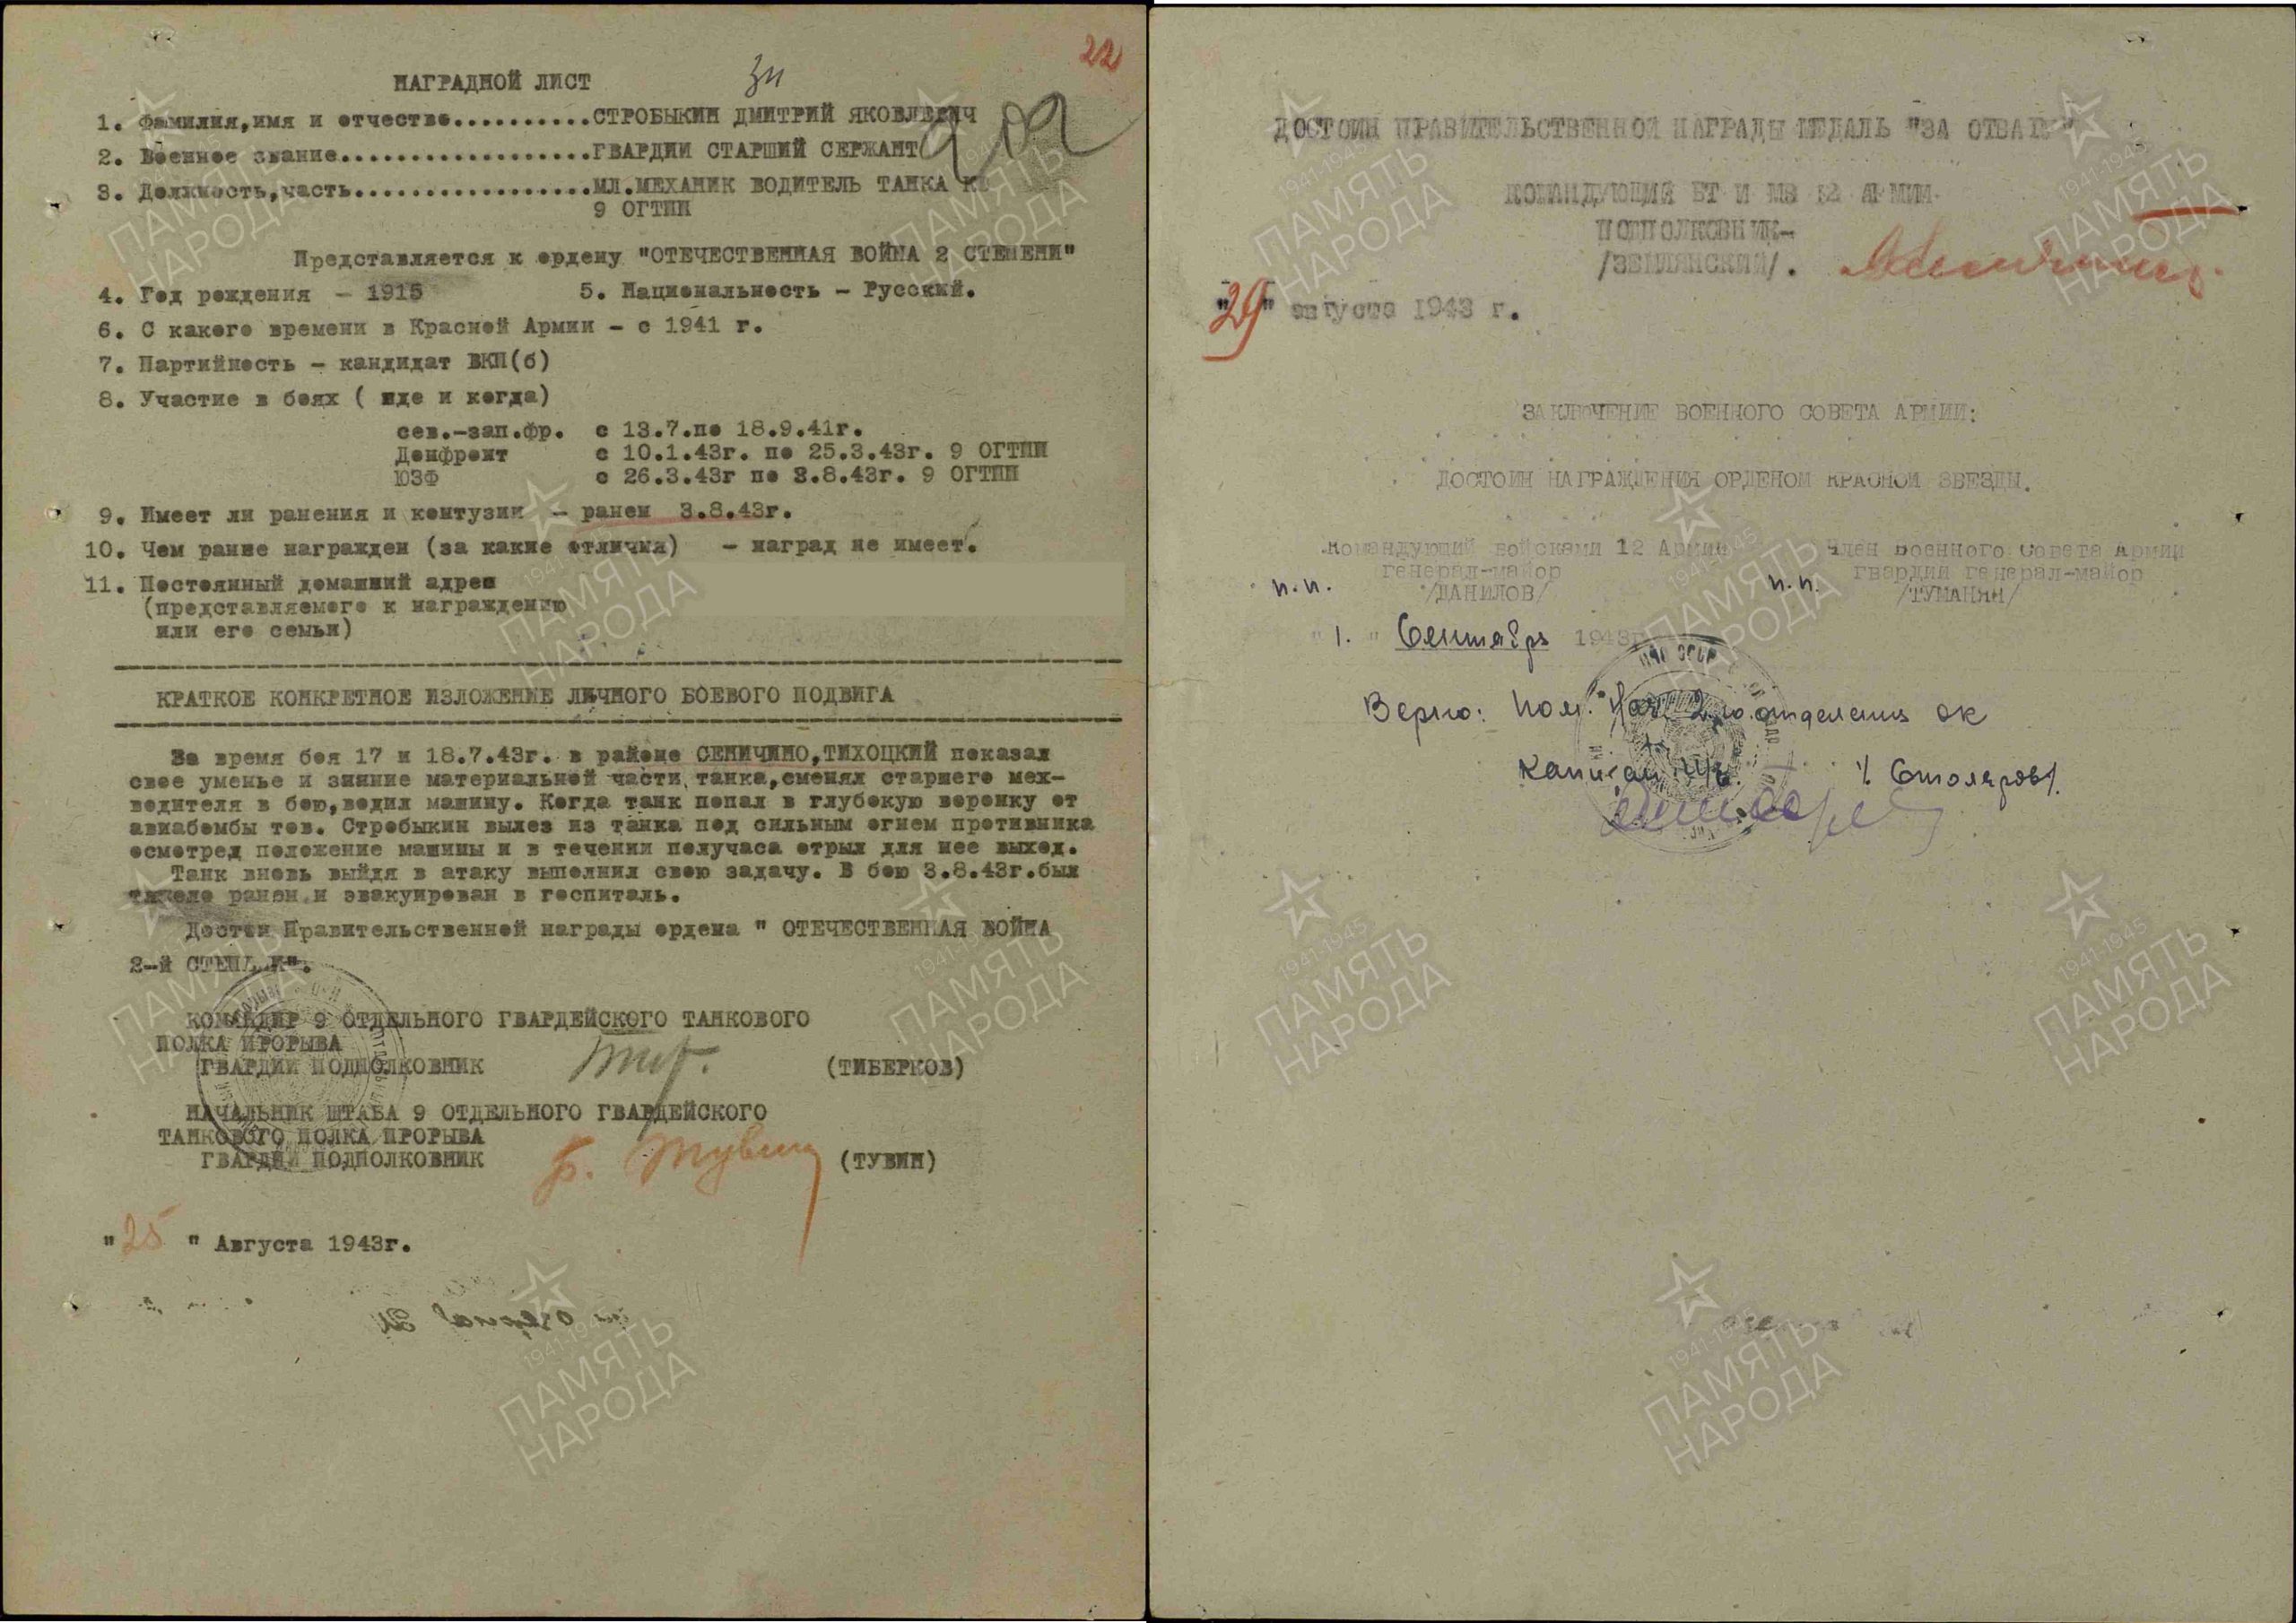 22
НАГРАДНОЙ ЛИСТ
1. Фамилия,имя и отчество..........СТРОБЫКИН ДМИТРИЙ ЯКОВЛЕВИЧ
2. Военное звание..................ГВАРДИИ СТАРШИЙ СЕРЖАНТ
3. Должность,часть.................МЛ.МЕХАНИК ВОДИТЕЛЬ ТАНКА КВ
9 ОГТПП
Представляется к ордену "ОТЕЧЕСТВЕННАЯ ВОЙНА 2 СТЕПЕНИ"
4. Год рождения - 1915 5. Национальность - Русский.
6. С какого времени в Красной Армии - с 1941 г.
7. Партийность - кандидат ВКП(б)
8. Участие в боях ( где и когда)
сев.-зап.фр. с 13.7.по 18.9.41г.
Донфронт с 10.1.43г. по 25.3.43г. 9 ОГТПП
ЮЗФ с 26.3.43г по 3.8.43г. 9 ОГТПП
9. Имеет ли ранения и контузии - ранен 3.8.43г.
10. Чем ранее награжден (за какие отличия) - наград не имеет.
11. Постоянный домашний адрес
(представляемого к награждению
или его семьи)
КРАТКОЕ КОНКРЕТНОЕ ИЗЛОЖЕНИЕ ЛИЧНОГО БОЕВОГО ПОДВИГА
За время боя 17 и 18.7.43г. в районе СЕНИЧИНО,ТИХОЦКИЙ показал
свое уменье и знание материальной части танка,сменял старшего мех-
водителя в бою,водил машину. Когда танк попал в глубокую воронку от
авиабомбы тов. Стробыкин вылез из танка под сильным огнем противника
осмотрел положение машины и в течении получаса отрыл для нее выход.
Танк вновь выйдя в атаку выполнил свою задачу. В бою 3.8.43г.был
тяжело ранен и эвакуирован в госпиталь.
Достоин Правительственной награды ордена " ОТЕЧЕСТВЕННАЯ ВОЙНА
2-й СТЕПЕНИ".
КОМАНДИР 9 ОТДЕЛЬНОГО ГВАРДЕЙСКОГО ТАНКОВОГО
ПОЛКА ПРОРЫВА
ГВАРДИИ ПОДПОЛКОВНИК (ТИБЕРКОВ)
НАЧАЛЬНИК ШТАБА 9 ОТДЕЛЬНОГО ГВАРДЕЙСКОГО
ТАНКОВОГО ПОЛКА ПРОРЫВА
ГВАРДИИ ПОДПОЛКОВНИК Б. Тувин (ТУВИН)
"25" Августа 1943г.
ДОСТОИН ПРАВИТЕЛЬСТВЕННОЙ НАГРАДЫ МЕДАЛЬ "ЗА ОТВАГУ"
КОМАНДУЮЩИЙ БТ И МВ 12 АРМИИ
ПОДПОЛКОВНИК-
/ЗЕМЛЯНСКИЙ/.
"29" августа 1943 г.
ЗАКЛЮЧЕНИЕ ВОЕННОГО СОВЕТА АРМИИ:
ДОСТОИН НАГРАЖДЕНИЯ ОРДЕНОМ КРАСНОЙ ЗВЕЗДЫ.
Командующий войсками 12 Армии Член Военного Совета Армии
генерал-майор гвардии генерал-майор
п.п. /ДАНИЛОВ/ п.п. /ТУМАНЯН/
"1." Сентябрь 1943г
Верно: Пом. Нач. 2го отделения ОК
Капитан а/с. /Столяров/.
ПАМЯТЬ НАРОДА
1941-1945